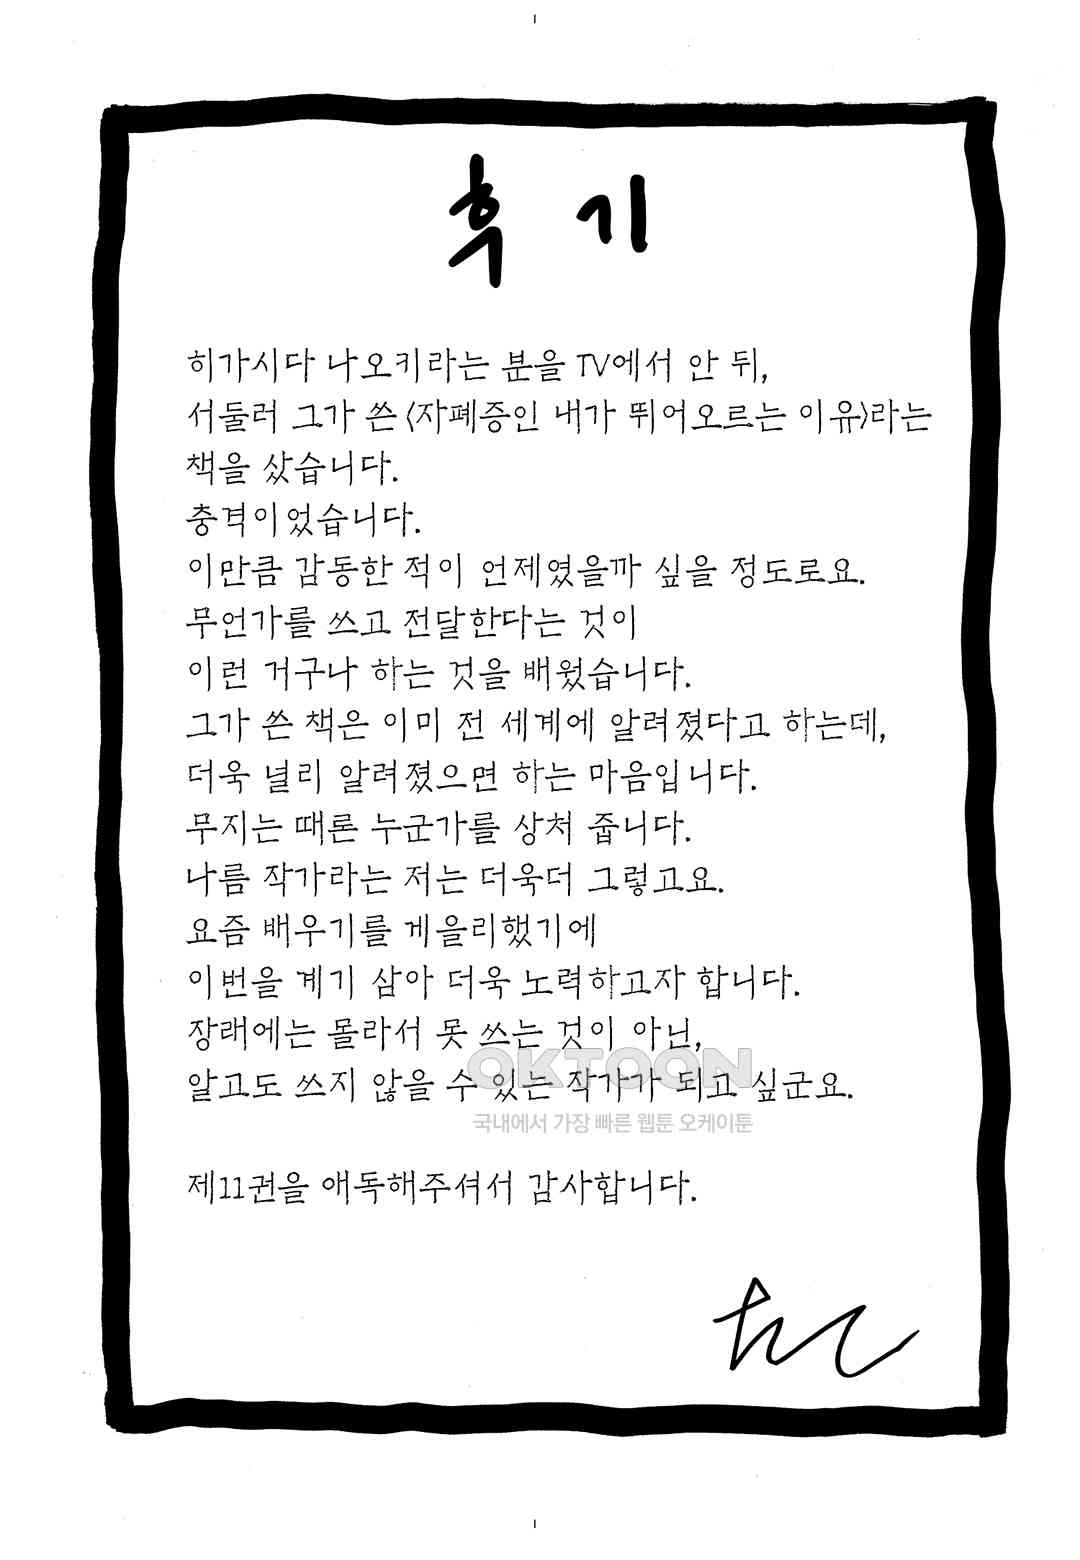 후기
히가시다 나오키라는 분을 TV에서 안 뒤,
서둘러 그가 쓴 〈자폐증인 내가 뛰어오르는 이유〉라는
책을 샀습니다.
충격이었습니다.
이만큼 감동한 적이 언제였을까 싶을 정도로요.
무언가를 쓰고 전달한다는 것이
이런 거구나 하는 것을 배웠습니다.
그가 쓴 책은 이미 전 세계에 알려졌다고 하는데,
더욱 널리 알려졌으면 하는 마음입니다.
무지는 때론 누군가를 상처 줍니다.
나름 작가라는 저는 더욱더 그렇고요.
요즘 배우기를 게을리했기에
이번을 계기 삼아 더욱 노력하고자 합니다.
장래에는 몰라서 못 쓰는 것이 아닌,
알고도 쓰지 않을 수 있는 작가가 되고 싶군요.
OKTOON
국내에서 가장 빠른 웹툰 오케이툰
제11권을 애독해주셔서 감사합니다.